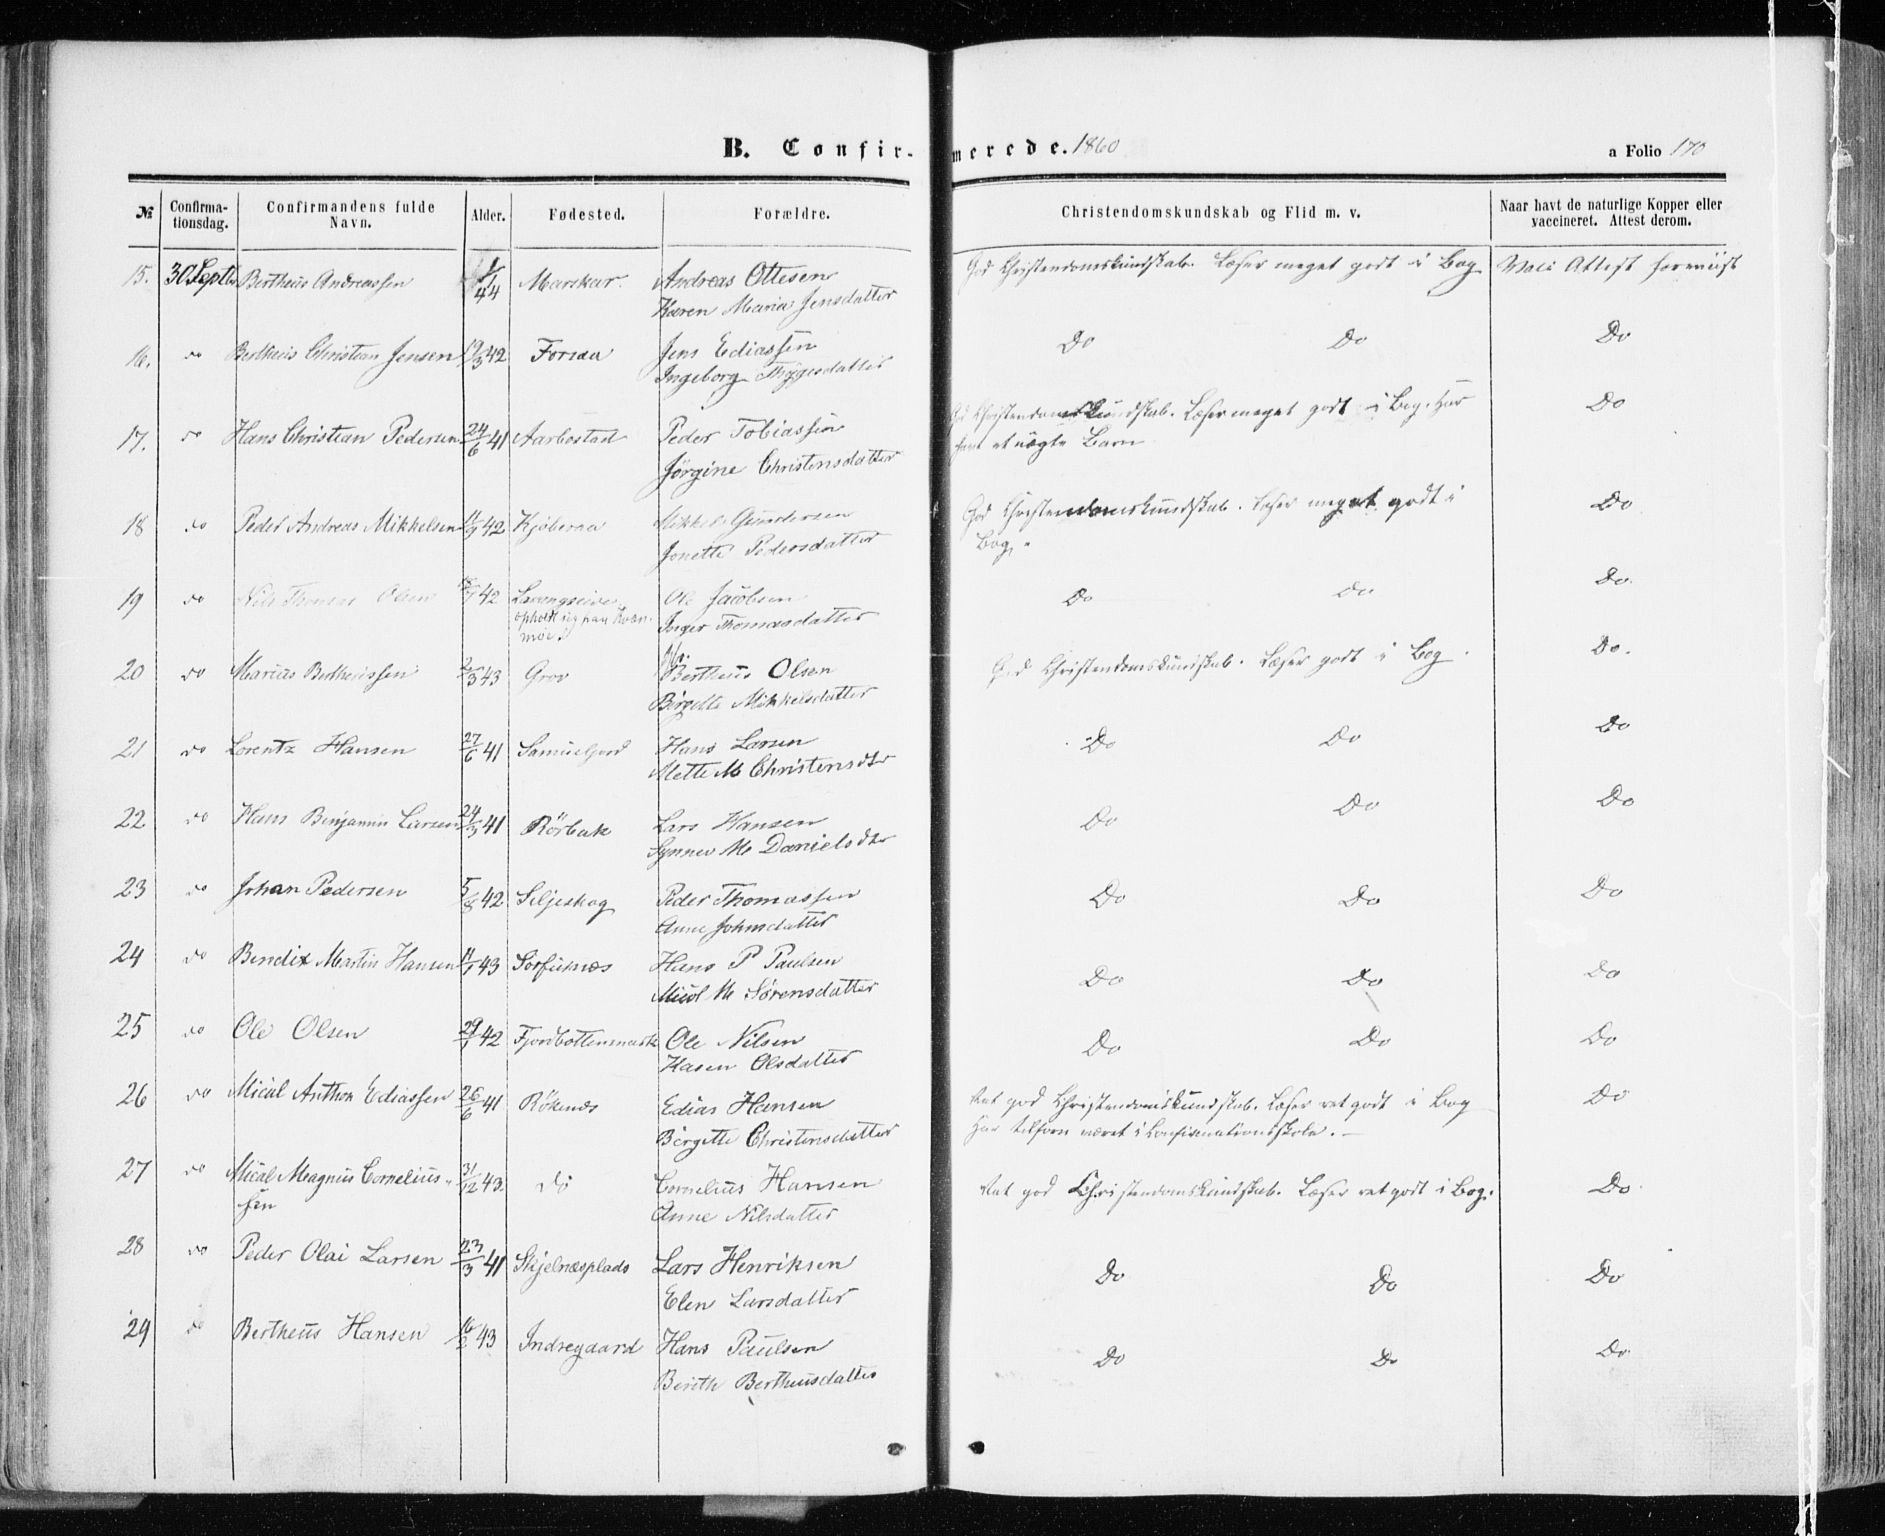 B. Confir-merede. 1860
a Folio 170
№ Confirma-tionsdag. Confirmandens fulde Navn. Alder. Fødested. Forældre. Christendomskundskab og Flid m. v. Naar havt de naturlige Kopper eller vaccineret. Attest derom.
15. 30 Septb Bertheus Andreassen 44 Andreas Ottesen God Christendomskundskab. Læser meget godt i Bog Attest
Karen Maria Jensdatter
16. do Bertheus Christian Jensen 42 Forsaa Jens Ediassen Do Do Do
Ingeborg Thygesdatter
17. do Hans Christian Pedersen 24/6 41 Aarbostad Peder Tobiassen God Christendomskundskab. Læser meget godt i Bog. Har Do
Jørgine Christensdatter et uægte Barn
18 do Peder Andreas Mikkelsen 11/9 42 Kjøbersaa Mikkel Gundersen God Christendomskundskab. Læser meget godt i Do
Jonette Pedersdatter Bog.
19 do Nils Thomas Olsen 42 Ole Jacobsen Do do Do.
opholdt sig paa Inger Thomasdatter
20 do Marius Bertheussen 43 Grov Bertheus Olsen God Christendomskundskab. Læser godt i Bog. Do.
Birgitte Mikkelsdatter
21 do Lorentz Hansen 27/6 41 Hans Larsen Do Do Do
Mette M Christensdtr
22 do Hans Benjamin Larsen 24/3 41 Rörbak Lars Hansen Do Do Do
Synnev M Danielsdtr
23 do Johan Pedersen 5/8 42 Siljeskog Peder Thomassen Do Do Do
Anne Johnsdatter
24 do Bendix Martin Hansen 11/1 43 Hans P Paulsen Do Do Do
Micol M Sørensdatter
25 do Ole Olsen 29/1 42 Fjordbottensmark Ole Nilsen Do Do Do
Karen Olsdatter
26 do Mical Anthon Ediassen 26/6 41 Røkenæs Edias Hansen Ret god Christendomskundskab. Læser ret godt i Bog Do
Birgitte Christensdatter Har tilforn været i Confirmationsskole. —
27 do Mical Magnus Cornelius- 31/12 43. Do Cornelius Hansen Ret god Christendomskundskab. Læser ret godt i Bog. Do.
sen Anne Nilsdatter
28 do Peder Olai Larsen 23/3 41 Skjelnæsplads Lars Henriksen Do Do Do
Elen Larsdatter
29 do Bertheus Hansen 16/2 43 Indregaard Hans Paulsen Do Do Do.
Bereth Bertheusdatter